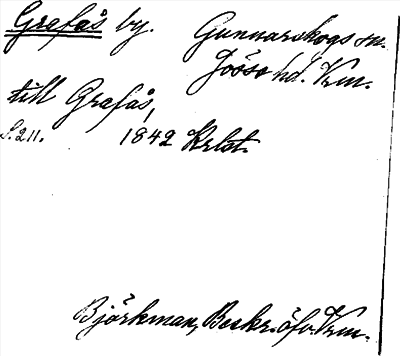 Grafås by. Gunnarskogs sn.
Jösse hd. Vrm.
till Grafås,
S. 211. 1842 Krlst.
Björkman, Beskr. öfv. Vrm.